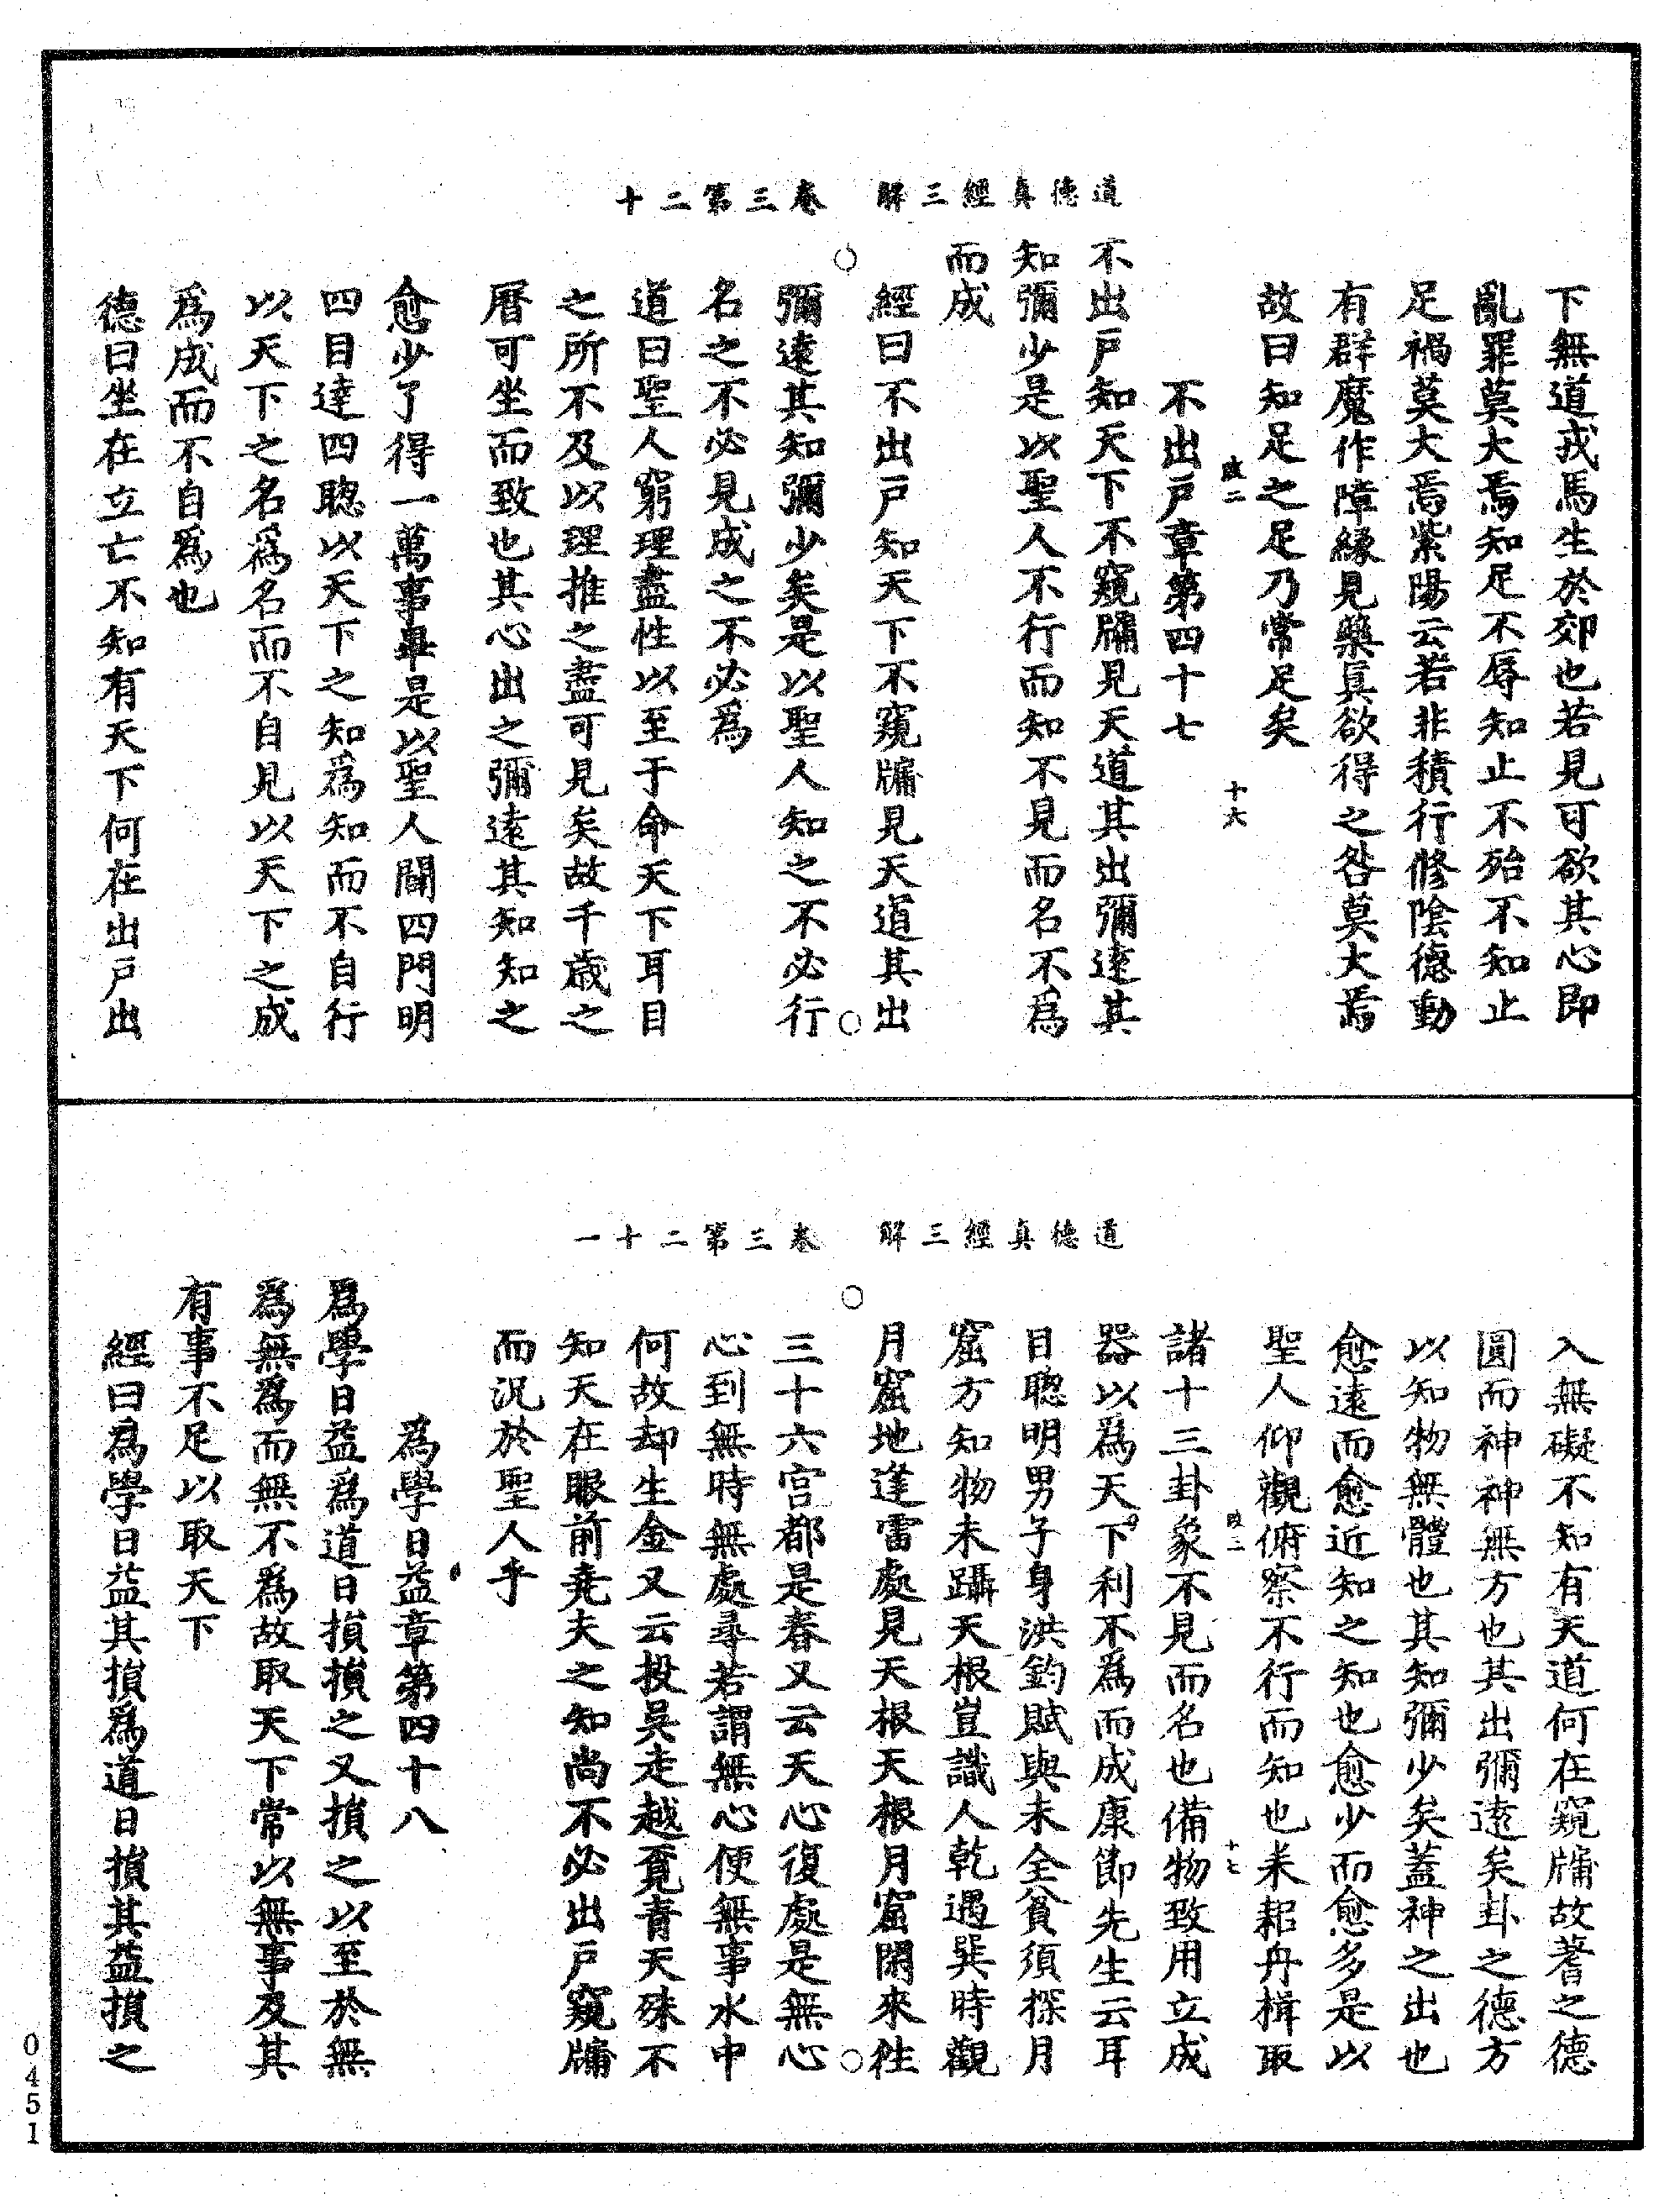 道德真經三解　卷三第二十
下無道戎馬生於郊也若見可欲其心即
亂罪莫大焉知足不辱知止不殆不知止
足禍莫大焉紫陽云若非積行修陰德動
有群魔作障緣見藥真欲得之咎莫大焉
故曰知足之足乃常足矣
政二　十六
不出戶章第四十七
不出戶知天下不窺牖見天道其出彌遠其
知彌少是以聖人不行而知不見而名不為
而成
經曰不出戶知天下不窺牖見天道其出
彌遠其知彌少矣是以聖人知之不必行
名之不必見成之不必為
道曰聖人窮理盡性以至于命天下耳目
之所不及以理推之盡可見矣故千歲之
曆可坐而致也其心出之彌遠其知知之
愈少了得一萬事畢是以聖人闢四門明
四目達四聰以天下之知為知而不自行
以天下之名為名而不自見以天下之成
為成而不自為也
德曰坐在立亡不知有天下何在出戶出
道德真經三解　卷三第二十一
入無礙不知有天道何在窺牖故蓍之德
圓而神神無方也其出彌遠矣卦之德方
以知物無體也其知彌少矣蓋神之出也
愈遠而愈近知之知也愈少而愈多是以
聖人仰觀俯察不行而知也耒耜舟楫取
政二　十七
諸十三卦象不見而名也備物致用立成
器以為天下利不為而成康節先生云耳
目聰明男子身洪鈞賦與未全貧須探月
窟方知物未躡天根豈識人乾遇巽時觀
月窟地逢雷處見天根天根月窟閑來往
三十六宮都是春又云天心復處是無心
心到無時無處尋若謂無心便無事水中
何故却生金又云投吳走越覓青天殊不
知天在眼前堯夫之知尚不必出戶窺牖
而況於聖人乎
為學日益章第四十八
為學日益為道日損損之又損之以至於無
為無為而無不為故取天下常以無事及其
有事不足以取天下
經曰為學日益其損為道日損其益損之
0451